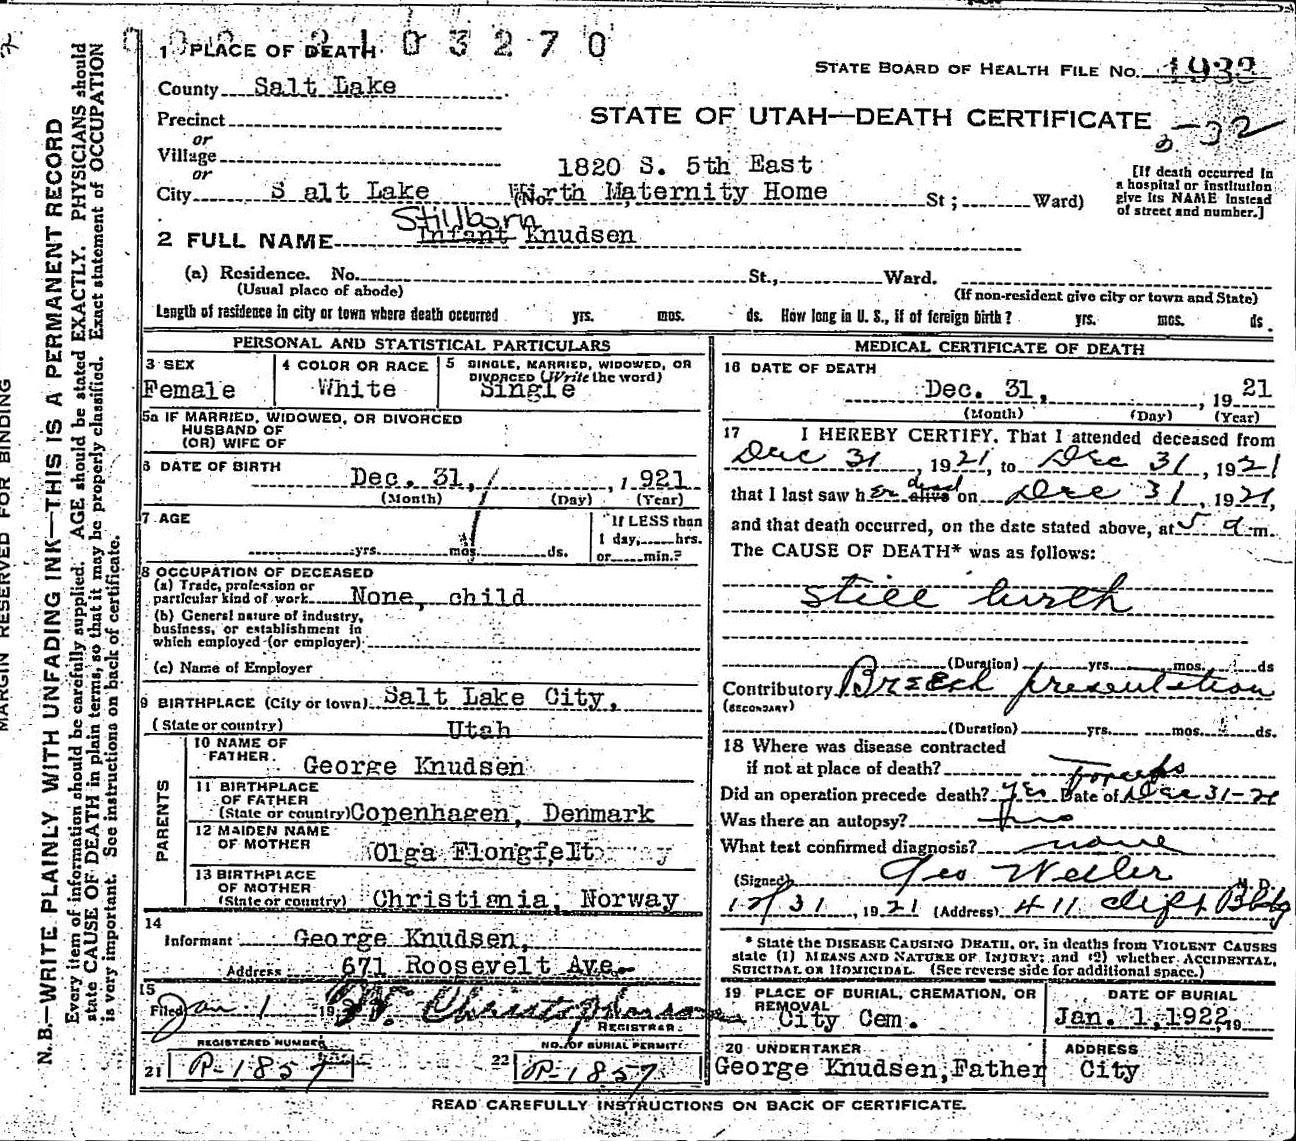 2103270
1 PLACE OF DEATH
STATE BOARD OF HEALTH FILE No. 1933
County Salt Lake
STATE OF UTAH—DEATH CERTIFICATE
Precinct
or
Village
or
1820 S. 5th East
City S alt Lake (No. Wirth Maternity Home St ; Ward)
[If death occurred in
a hospital or institution
give its NAME instead
of street and number.]
Stillborn
2 FULL NAME Infant Knudsen
(a) Residence. No. St., Ward.
(Usual place of abode)
(If non-resident give city or town and State)
Length of residence in city or town where death occurred yrs. mos. ds. How long in U. S., if of foreign birth? yrs. mos. ds.
PERSONAL AND STATISTICAL PARTICULARS
3 SEX
Female
4 COLOR OR RACE
White
5 SINGLE, MARRIED, WIDOWED, OR
DIVORCED (Write the word)
Single
5a IF MARRIED, WIDOWED, OR DIVORCED
HUSBAND OF
(OR) WIFE OF
6 DATE OF BIRTH
Dec. 31, 1 921
(Month) (Day) (Year)
7 AGE
yrs. mos. ds.
If LESS than
1 day, hrs.
or min.?
8 OCCUPATION OF DECEASED
(a) Trade, profession or
particular kind of work None, child
(b) General nature of industry,
business, or establishment in
which employed (or employer)
(c) Name of Employer
9 BIRTHPLACE (City or town) Salt Lake City,
(State or country) Utah
PARENTS
10 NAME OF
FATHER George Knudsen
11 BIRTHPLACE
OF FATHER
(State or country) Copenhagen, Denmark
12 MAIDEN NAME
OF MOTHER Olga Flongfelt
13 BIRTHPLACE
OF MOTHER
(State or country) Christiania, Norway
14
Informant George Knudsen,
Address 671 Roosevelt Ave.
15
Filed Jan 1 19 W. Christopherson
REGISTRAR
REGISTERED NUMBER
21 P-1857
NO. OF BURIAL PERMIT
22 P-1857
MEDICAL CERTIFICATE OF DEATH
16 DATE OF DEATH
Dec. 31, , 19 21
(Month) (Day) (Year)
17 I HEREBY CERTIFY, That I attended deceased from
Dec 31, 1921, to Dec 31, 1921
that I last saw her alive dead on Dec 31, 1921,
and that death occurred, on the date stated above, at 5 a m.
The CAUSE OF DEATH* was as follows:
still birth
(Duration) yrs. mos. ds
Contributory Breech presentation
(SECONDARY)
(Duration) yrs. mos. ds.
18 Where was disease contracted
if not at place of death?
Forceps
Did an operation precede death? yes Date of Dec 31-21
Was there an autopsy? no
What test confirmed diagnosis? none
(Signed) Geo Weiler M. D.
12/31, 1921 (Address) 411 Clift Bldg
* State the DISEASE CAUSING DEATH, or, in deaths from VIOLENT CAUSES
state (1) MEANS AND NATURE OF INJURY; and (2) whether ACCIDENTAL,
SUICIDAL OR HOMICIDAL. (See reverse side for additional space.)
19 PLACE OF BURIAL, CREMATION, OR
REMOVAL
City Cem.
DATE OF BURIAL
Jan. 1,1922, 19
20 UNDERTAKER
George Knudsen,Father
ADDRESS
City
READ CAREFULLY INSTRUCTIONS ON BACK OF CERTIFICATE.
MARGIN RESERVED FOR BINDING
N. B.—WRITE PLAINLY WITH UNFADING INK—THIS IS A PERMANENT RECORD
Every item of information should be carefully supplied. AGE should be stated EXACTLY. PHYSICIANS should
state CAUSE OF DEATH in plain terms, so that it may be properly classified. Exact statement of OCCUPATION
is very important. See instructions on back of certificate.